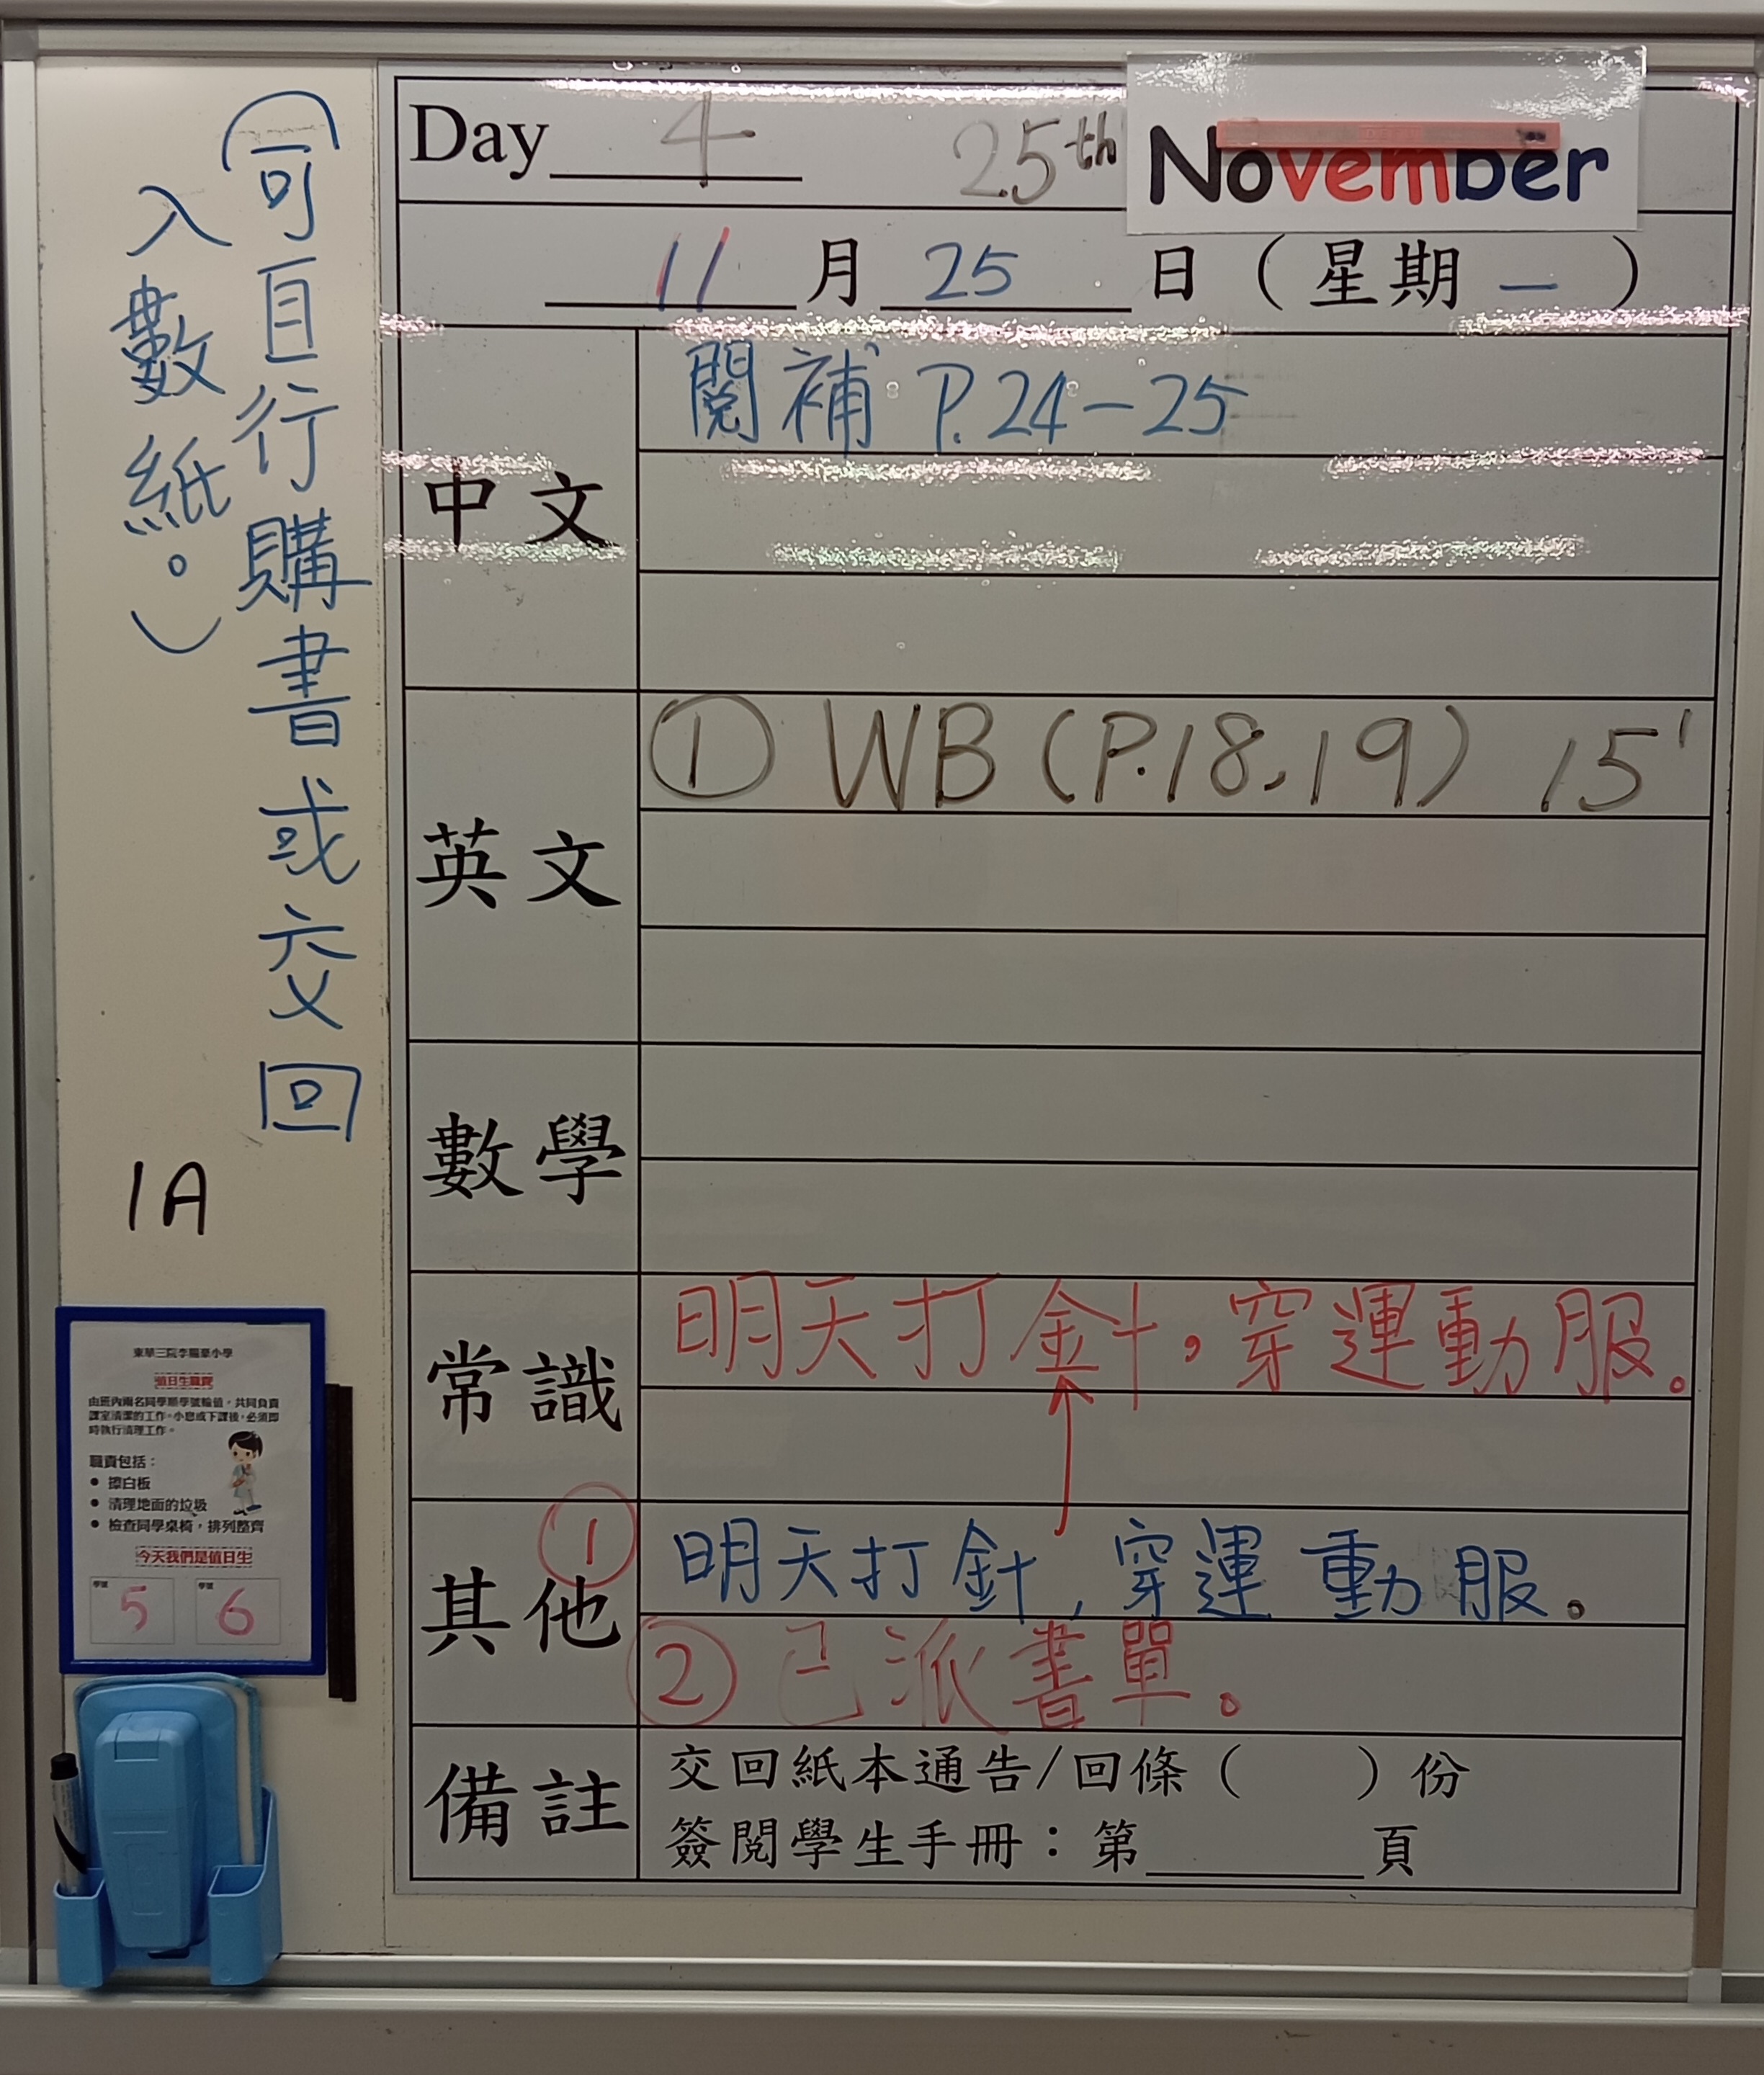 Day 4 25th November
11月25日（星期一）
中文
閱補 P.24-25
英文
① WB (P.18,19) 15'
數學
常識
明天打針，穿運動服。
其他
① 明天打針，穿運動服。
② 已派書單。
備註
交回紙本通告/回條（ ）份
簽閱學生手冊：第______頁
（可自行購書或交回
入數紙。）
1A
值日生職責
由班內兩名同學順學號輪值，共同負責
課室清潔的工作。小息或下課後，必須即
時執行清理工作。
職責包括：
● 擦白板
● 清理地面的垃圾
● 檢查同學桌椅，排列整齊
今天我們是值日生
學號 5
學號 6